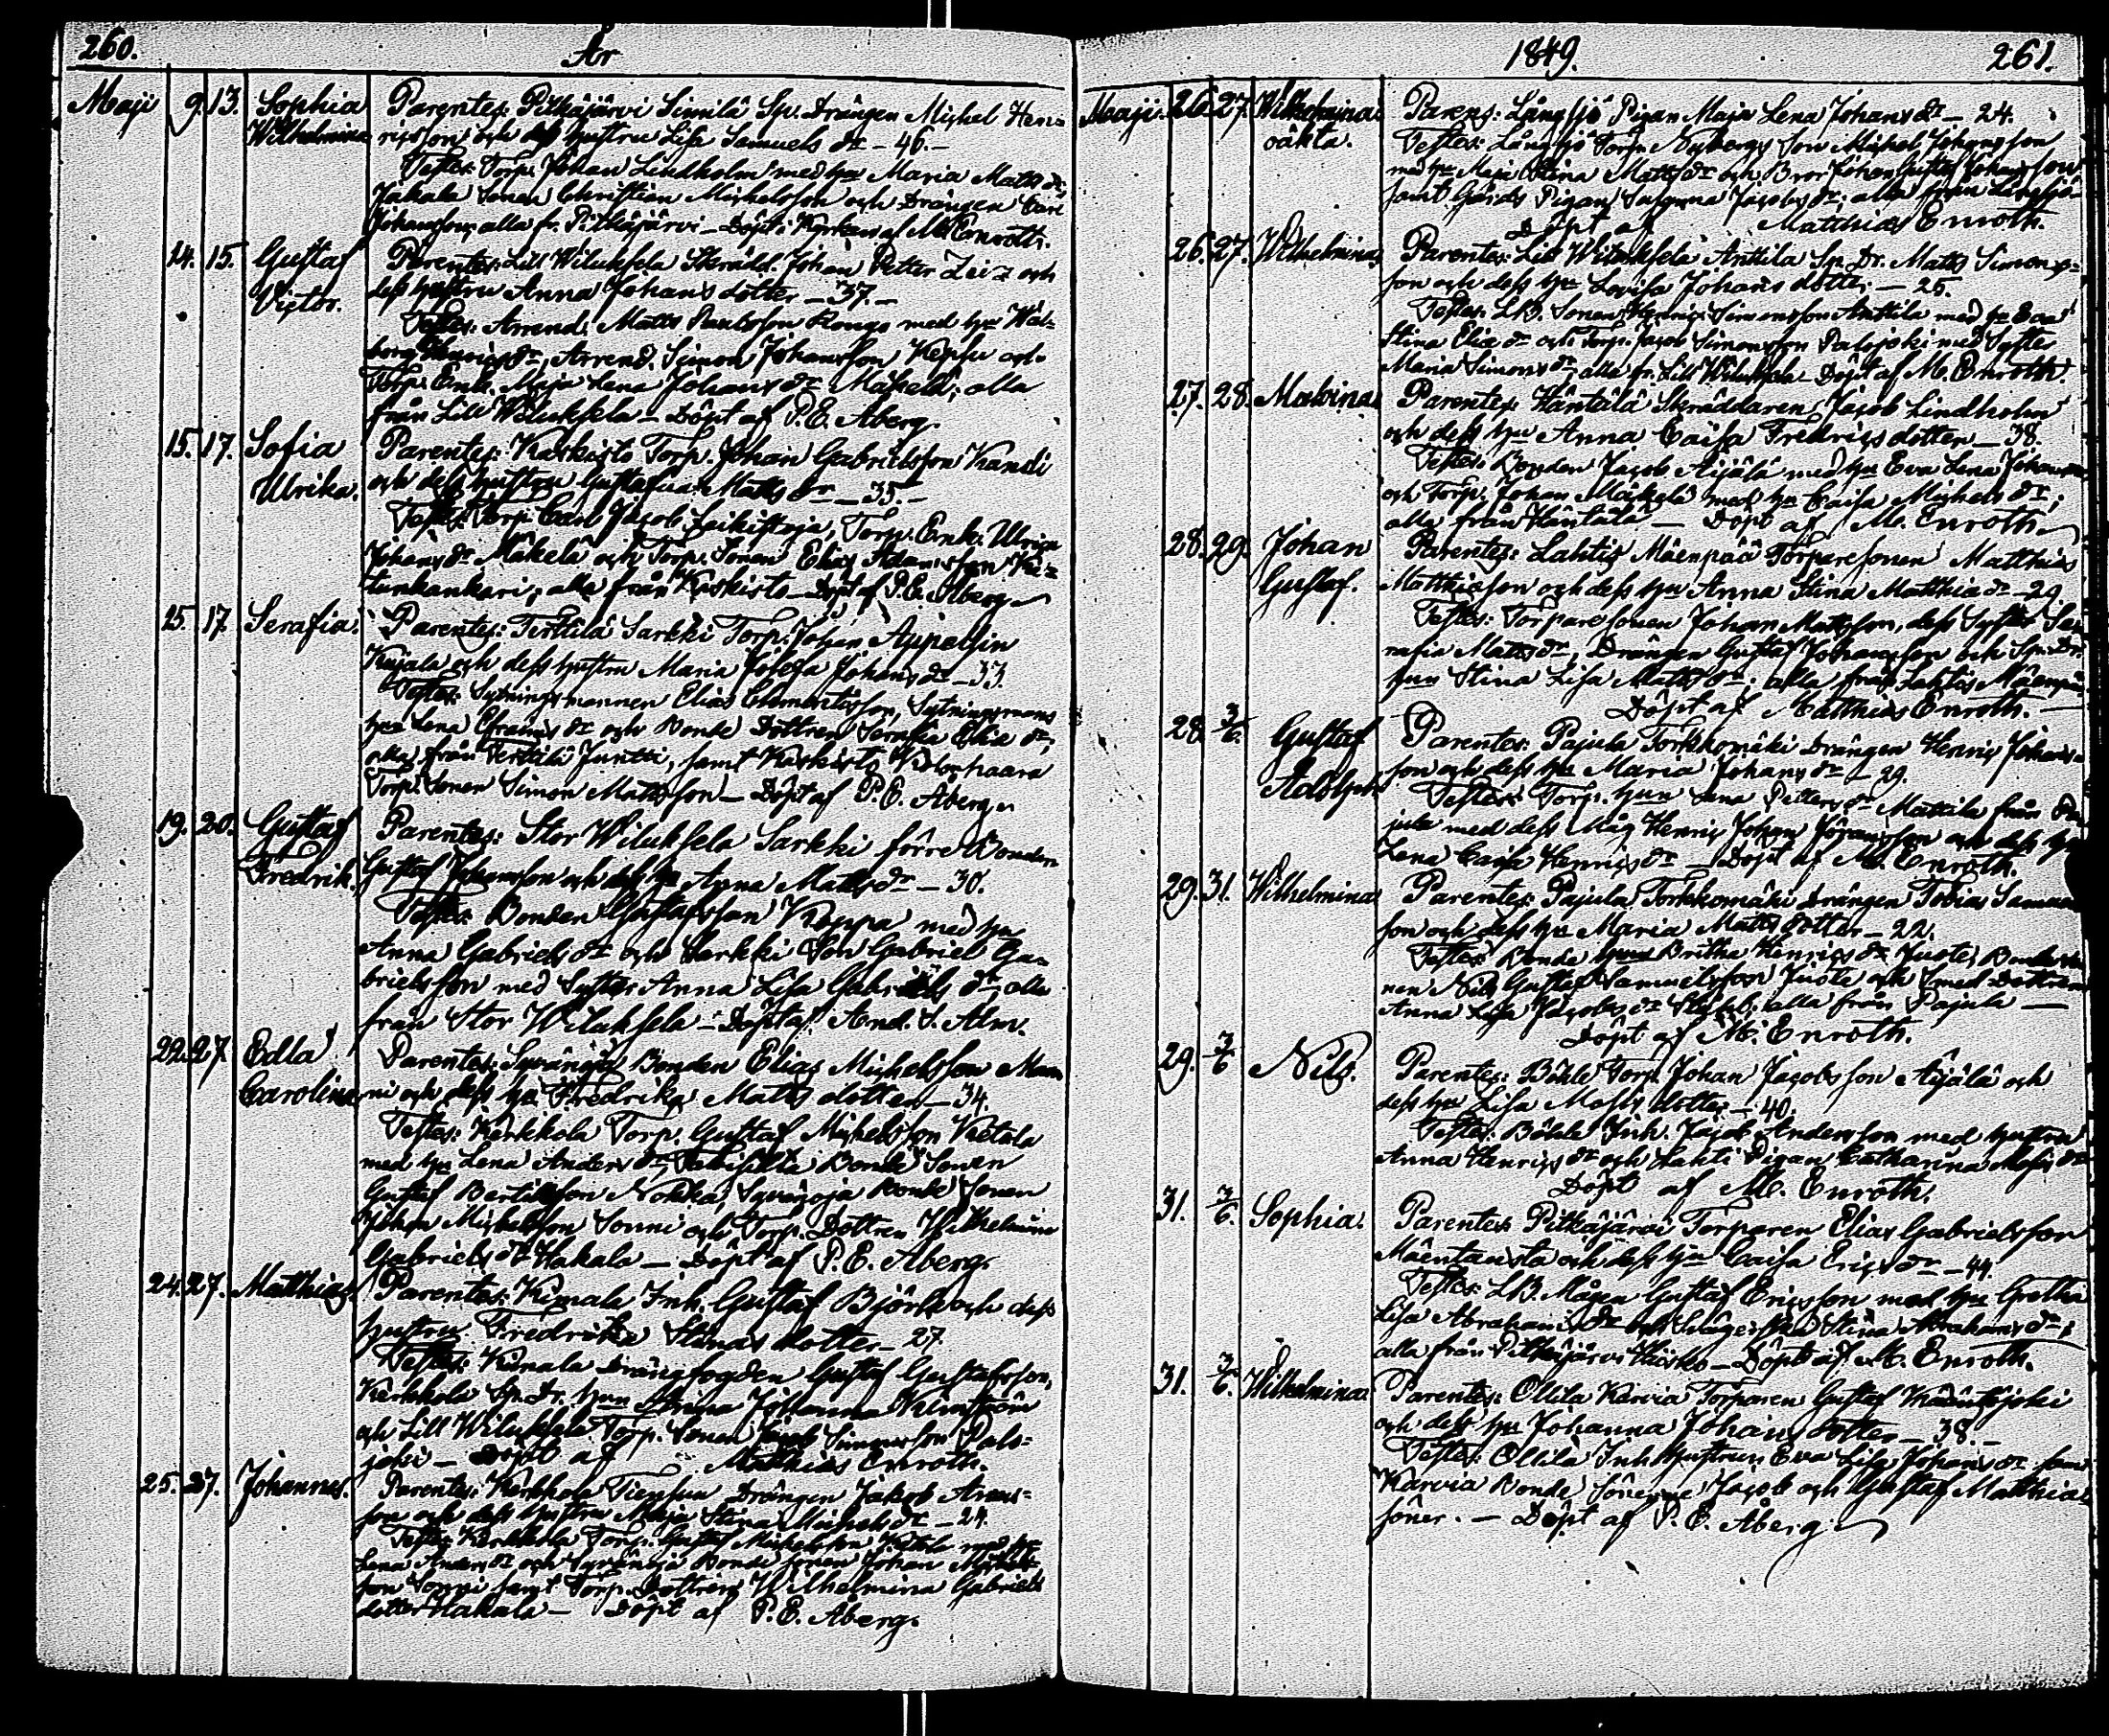 260. År
Maji 9. 13. Sophia Parentes: Pitkäjärvi Simila Sp. Drängen Michel Hen-
Wilhelmina ricsson och hustru Lisa Samuels dr – 46. –
Testes: Torp. Johan Lindholm med hu Maria Matts dr,
Jakala Sonen Christian Michelsson och Drängen Carl
Johansson; alla fr. Pitkäjärvi – Döpt i Kyrkan af M. Enroth.
14. 15. Gustaf Parentes: Lill Wiluksela Skrädd. Johan Petter och
Victor. dess hustru Anna Johans dotter – 37. –
Testes: Arrend. Matts Paulsson med hu Wal-
borg Henrics dr, Arrend. Simon Johansson Keppu och
Torp. Enk. Maja Lena Johans dr Mäkelä; alla
från Lill Wiluksela – Döpt af P. E. Åberg.
15. 17. Sofia Parentes: Kaskisto Torp. Johan Gabrielsson Kandi
Ulrika. och dess hustru Gustafva Matts dr – 35. –
Testes: Torp. Carl Jacob Laikistoja, Torp. Enk. Ulrica
Johans dr Mäkelä och Torp. Sonen Elias Adamsson
alla från Kaskisto – Döpt af P. E. Åberg
15. 17. Serafia. Parentes: Terttilä Sarkki Torp. Johan
Kujala och dess hustru Maria Johans dr – 33.
Testes: Sytningsmannen Elias Clementsson, Sytningsmans
hu Lena Efraims dr och Bonde Dottren Serafia Elia dr,
alla från Terttilä Juntti, samt Kaskisto
Torp. Sonen Simon Mattsson – Döpt af P. E. Åberg
19. 20. Gustaf Parentes: Stor Wiluksela Sarkki förre Bonden
Fredrik. Gustaf Johansson och dess hu Anna Matts dr – 30.
Testes: Bonden Gustafsson Koppa med hu
Anna Gabriels dr och Sarkki Son Gabriel Ga-
brielsson med Syster Anna Lisa Gabriels dr, alla
från Stor Wiluksela – Döpt af And. S. Alm.
22. 27. Edla Parentes: Syvänoja Bonden Elias Michelsson
Carolina. och dess hu Fredrika Matts dotter – 34.
Testes: Kerkkola Torp. Gustaf Michelsson Ketola
med hu Lena Anders dr, Bonde Sonen
Gustaf Bertilsson Nokka, Syvänoja Bonde Sonen
Johan Michelsson Sonni och Torp. Dottren Wilhelmina
Gabriels dr Hakala – Döpt af P. E. Åberg.
24. 27. Matthias. Parentes: Kimala Inh. Gustaf Björk och dess
hustru Fredrika dotter – 27.
Testes: Kimala Drängfogden Gustaf Gustafsson,
Kerkkola Sp. Dr. hun Johanna
och Lill Wiluksela Torp. Sonen Jacob Simonsson Palo-
joki – Döpt af Matthias Enroth.
25. 27. Johannes. Parentes: Kerkkola Drängen Jakob
son och dess hustru Maja Stina Michels dr – 24.
Testes: Kerkkola Torp. Gustaf Michelsson Ketola med hu
Lena Anders dr och Syvänoja Bonde Sonen Johan Michels-
son Sonni samt Torp. Dottren Wilhelmina Gabriels
dotter Hakala – Döpt af P. E. Åberg.
1849. 261.
Maji. 26. 27. Wilhelmina Parens: Långsjö Pigan Maja Lena Johans dr – 24.
oäkta. Testes: Långsjö Torp. Nybergs Son Michel Johansson
med hu Maja Stina Matts dr och Bror Johan Gustaf Johansson
samt Gårds Pigan Susanna Jacobs dr; alla från Långsjö
Döpt af Matthias Enroth.
26. 27. Wilhelmina Parentes: Lill Wiluksela Anttila Sp. Dr. Matts Simons-
son och dess hu Lovisa Johans dotter – 25.
Testes: LB. Sonen Henric Simonsson Anttila med hu Eva
Stina Elia dr och Torp. Jacob Simonsson Palojoki med Syster
Maria Simons dr; alla fr. Lill Wiluksela – Döpt af M. Enroth.
27. 28. Malvina. Parentes: Häntälä Skräddaren Jacob Lindholm
och dess hu Anna Caisa Fredrics dotter – 38.
Testes: Bonden Jacob Äijälä med hu Eva Lena Johans dr
och Torp. Johan Mäkelä med hu Caisa Michels dr;
alla från Häntälä – Döpt af M. Enroth.
28. 29. Johan Parentes: Lahtis Mäenpää Torparesonen Matthias
Gustaf. Matthiasson och dess hu Anna Stina Matthia dr – 29.
Testes: Torparesonen Johan Mattsson, dess Syster Se-
rafia Matts dr, Drängen Gustaf Johansson och Sp. Dr.
hun Stina Lisa Matts dr; alla från Lahtis Mäenpää
Döpt af Matthias Enroth. –
28. 3/6. Gustaf Parentes: Pajula Torkkomäki Drängen Henric Johans-
Adolph son och dess hu Maria Johans dr – 29.
Testes: Torp. hun Lena Petters dr Mattila från Pa-
jula med dess Måg Henric Johan Göransson och dess hu
Lena Caisa Henrics dr – Döpt af M. Enroth.
29. 31. Wilhelmina Parentes: Pajula Torkkomäki Drängen Tobias Samuels
son och dess hu Maria Matts dotter – 22.
Testes: Bonde hun Britha Henrics dr Juote, Bonde So-
nen Nils Gustaf Samuelsson Juote och Smed Dottren
Anna Lisa Jacobs dr alla från Pajula –
Döpt af M. Enroth.
29. 3/6 Nils. Parentes: Böhle Torp. Johan Jacobsson Äijälä och
dess hu Lisa Mosis dotter – 40.
Testes: Böhle Inh. Jacob Andersson med hustru
Anna Henrics dr och Lahti Pigan Catharina Mosis dr
Döpt af M. Enroth.
31. 3/6. Sophia. Parentes: Pitkäjärvi Torparen Elias Gabrielsson
Mäentausta och dess hu Caisa Erics dr – 44.
Testes: LB. Mågen Gustaf Ericsson med hu Gretha
Lisa Abrahams dr och Svägerskan Stina Abrahams dr;
alla från Pitkäjärvi – Döpt af M. Enroth.
31. 3/6. Wilhelmina Parentes: Ollila Karvia Torparen Gustaf
och dess hu Johanna Johans dotter – 38. –
Testes: Ollila Inh. Hustrun Eva Lisa Johans dr samt
Karvia Bonde Sönerne Jacob och Gustaf Matthiæ
söner. – Döpt af P. E. Åberg